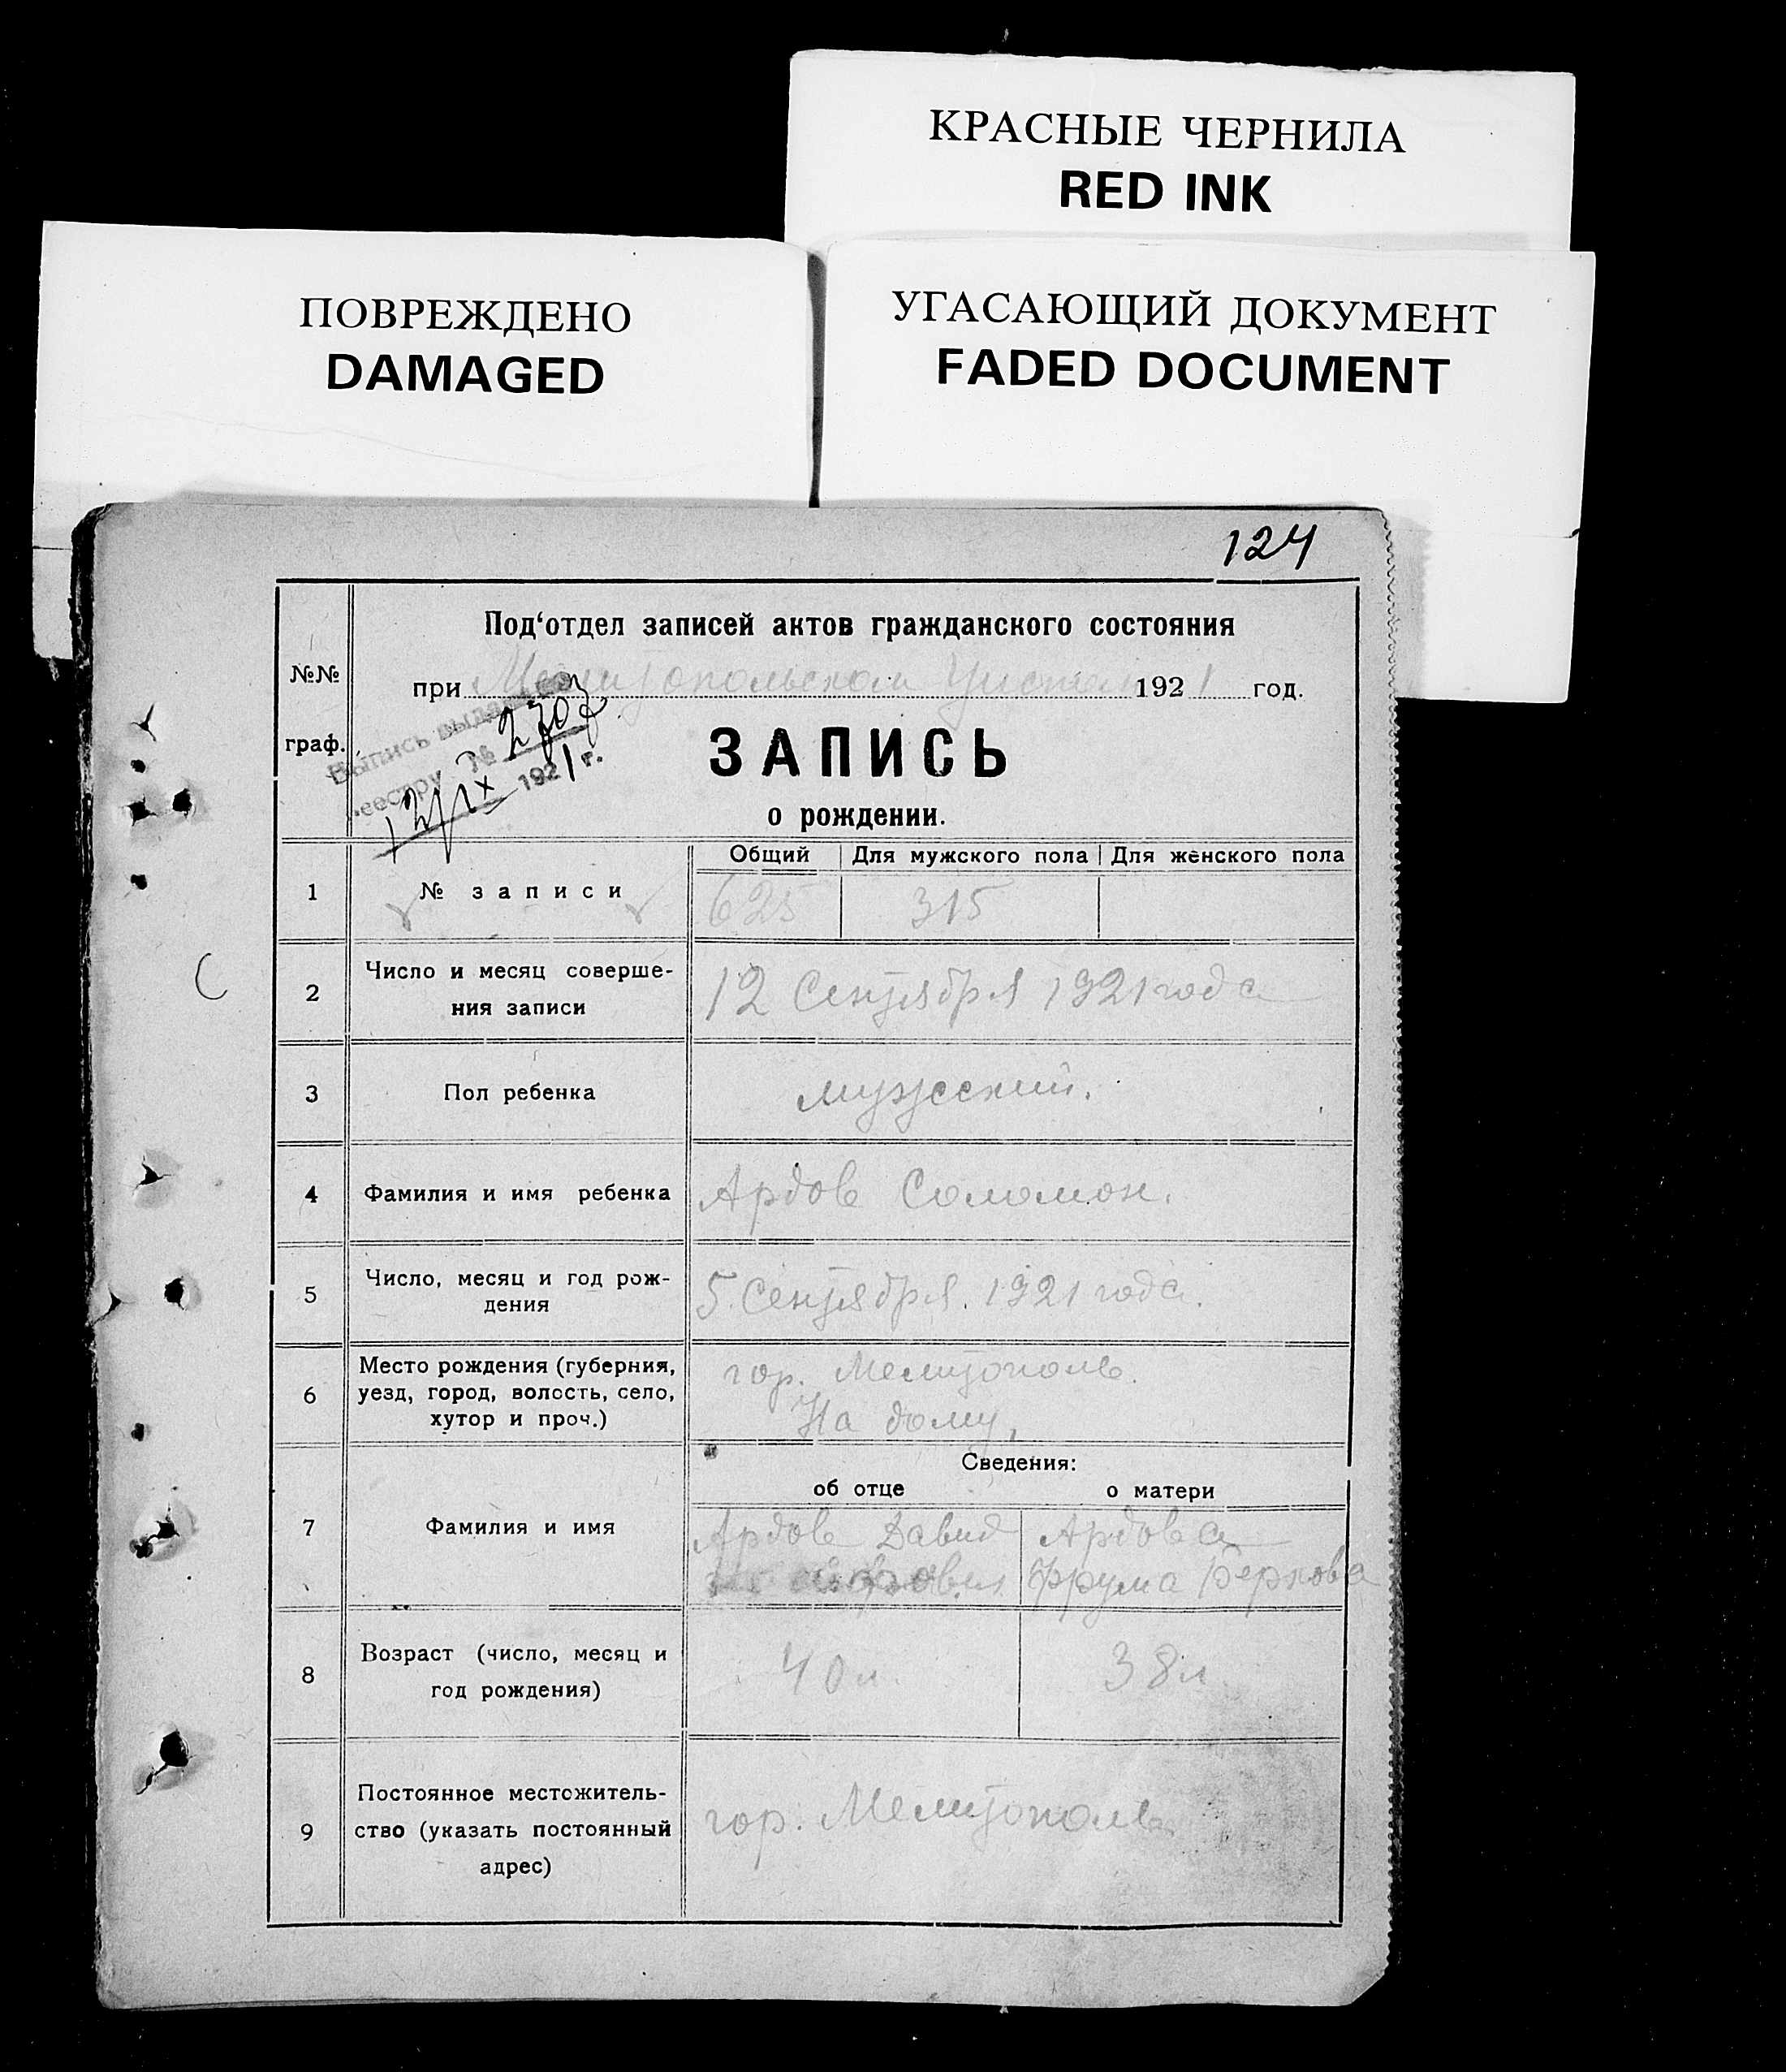 КРАСНЫЕ ЧЕРНИЛА
RED INK
ПОВРЕЖДЕНО
DAMAGED
УГАСАЮЩИЙ ДОКУМЕНТ
FADED DOCUMENT
124
№№
граф.
Под‘отдел записей актов гражданского состояния
при Мелитопольском 1921 год.
Выпись выдана
реестру № 2707
12/IX 1921 г.
ЗАПИСЬ
о рождении.
Общий Для мужского пола Для женского пола
1 № записи 625 315
2 Число и месяц соверше-
ния записи
12 Сентября 1921 года
3 Пол ребенка мужеский.
4 Фамилия и имя ребенка Ардов Соломон.
5 Число, месяц и год рож-
дения
5. Сентября. 1921 года.
6 Место рождения (губерния,
уезд, город, волость, село,
хутор и проч.)
гор. Мелитополь.
На дому.
Сведения:
об отце о матери
7 Фамилия и имя
Ардов Давид
Ардова
Фрума Беркова
8 Возраст (число, месяц и
год рождения)
40 л. 38 л
9 Постоянное местожитель-
ство (указать постоянный
адрес)
гор. Мелитополь